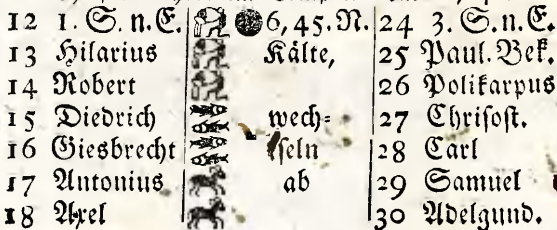 12 1. S. n. E. 6, 45. N. 24 3. S. n. E.
13 Hilarius Kälte, 25 Paul. Bek.
14 Robert 26 Polikarpus
15 Diedrich wech= 27 Chrisost.
16 Giesbrecht seln 28 Carl
17 Antonius ab 29 Samuel
18 Axel 30 Adelgund.